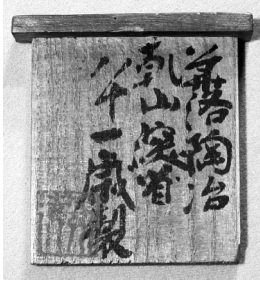 華洛陶冶
乾山深省
八十一歳製